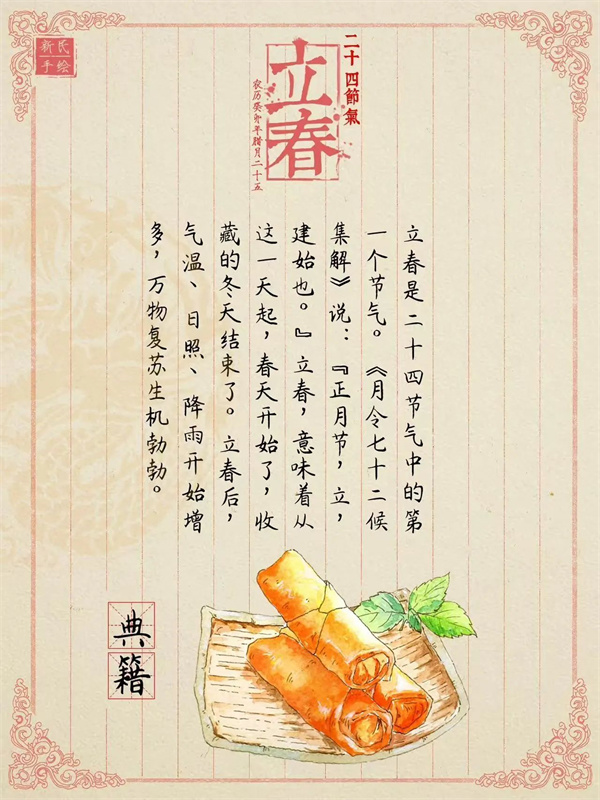 二十四節氣
立春
农历癸卯年腊月二十五
新民
手绘
立春是二十四节气中的第
一个节气。《月令七十二候
集解》说：『正月节，立，
建始也。』立春，意味着从
这一天起，春天开始了，收
藏的冬天结束了。立春后，
气温、日照、降雨开始增
多，万物复苏生机勃勃。
典籍